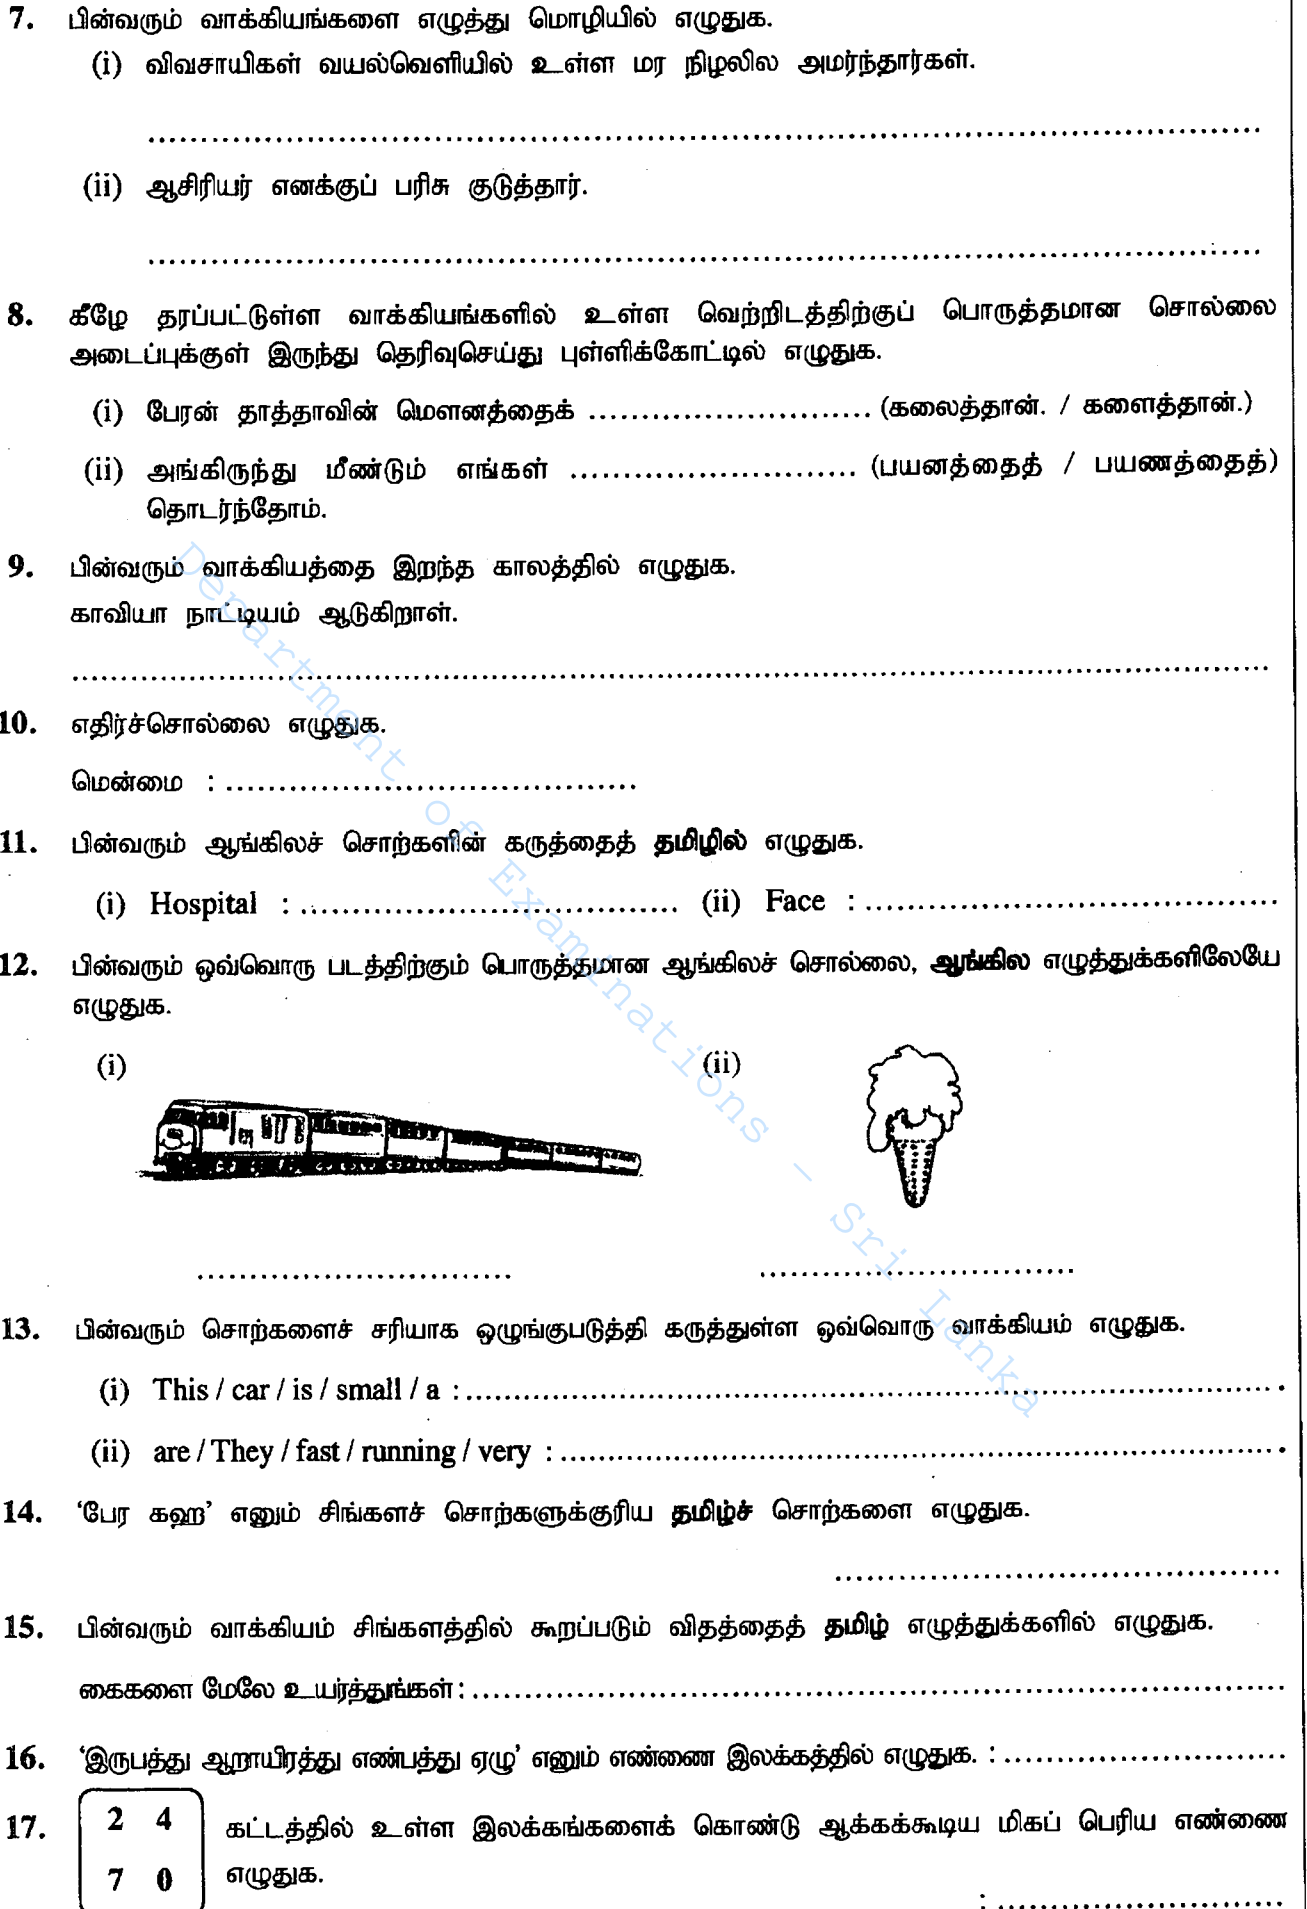 7. பின்வரும் வாக்கியங்களை எழுத்து மொழியில் எழுதுக.
(i) விவசாயிகள் வயல்வெளியில் உள்ள மர நிழலில அமர்ந்தார்கள்.
................................................................
(ii) ஆசிரியர் எனக்குப் பரிசு குடுத்தார்.
................................................................
8. கீழே தரப்பட்டுள்ள வாக்கியங்களில் உள்ள வெற்றிடத்திற்குப் பொருத்தமான சொல்லை
அடைப்புக்குள் இருந்து தெரிவுசெய்து புள்ளிக்கோட்டில் எழுதுக.
(i) பேரன் தாத்தாவின் மௌனத்தைக் ........................... (கலைத்தான். / களைத்தான்.)
(ii) அங்கிருந்து மீண்டும் எங்கள் ........................... (பயனத்தைத் / பயணத்தைத்)
தொடர்ந்தோம்.
9. பின்வரும் வாக்கியத்தை இறந்த காலத்தில் எழுதுக.
காவியா நாட்டியம் ஆடுகிறாள்.
................................................................
10. எதிர்ச்சொல்லை எழுதுக.
மென்மை : .......................................
11. பின்வரும் ஆங்கிலச் சொற்களின் கருத்தைத் தமிழில் எழுதுக.
(i) Hospital : .................................... (ii) Face : .......................................
12. பின்வரும் ஒவ்வொரு படத்திற்கும் பொருத்தமான ஆங்கிலச் சொல்லை, ஆங்கில எழுத்துக்களிலேயே
எழுதுக.
(i) (ii)
.............................. ..............................
13. பின்வரும் சொற்களைச் சரியாக ஒழுங்குபடுத்தி கருத்துள்ள ஒவ்வொரு வாக்கியம் எழுதுக.
(i) This / car / is / small / a : ................................................................ .
(ii) are / They / fast / running / very : ................................................................ .
14. ‘பேர கஹ’ எனும் சிங்களச் சொற்களுக்குரிய தமிழ்ச் சொற்களை எழுதுக.
..........................................
15. பின்வரும் வாக்கியம் சிங்களத்தில் கூறப்படும் விதத்தைத் தமிழ் எழுத்துக்களில் எழுதுக.
கைகளை மேலே உயர்த்துங்கள் : ................................................................
16. ‘இருபத்து ஆறாயிரத்து எண்பத்து ஏழு’ எனும் எண்ணை இலக்கத்தில் எழுதுக. : ...........................
17. 2 4
7 0
கட்டத்தில் உள்ள இலக்கங்களைக் கொண்டு ஆக்கக்கூடிய மிகப் பெரிய எண்ணை
எழுதுக.
: ...........................
Department of Examinations - Sri Lanka